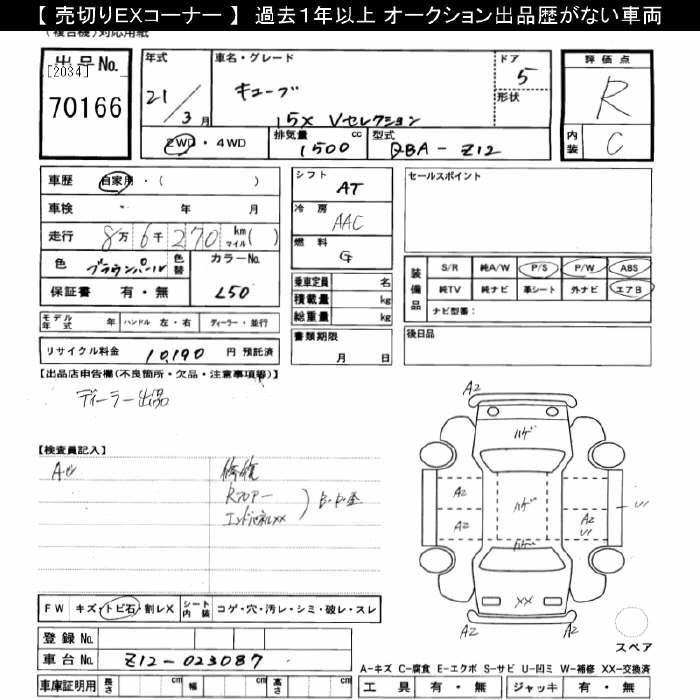 【 売切りEXコーナー 】 過去1年以上 オークション出品歴がない車両
(複合機)対応用紙
出品No.
[2034]
70166
年式
21/3月
車名・グレード
キューブ
15X Vセレクション
ドア
5
形状
評価点
R
内装
C
2WD・4WD
排気量
1500cc
型式
DBA-Z12
車歴 自家用・( )
車検 年 月
走行 8万6千270 km マイル( )
色 ブラウンパール 色替 カラーNo.
保証書 有・無 L50
モデル年式 年 ハンドル 左・右 ディーラー・並行
リサイクル料金 10,190 円 預託済
シフト AT
冷房 AAC
燃料 G
乗車定員 名
積載量 kg
総重量 kg
書類期限
月 日
セールスポイント
装備品
S/R 純A/W P/S P/W ABS
純TV 純ナビ 革シート 外ナビ エアB
ナビ型番:
後日品
【出品店申告欄(不良箇所・欠品・注意事項等)】
ディーラー出品
【検査員記入】
修復
Rフロアー
エンドパネルXX
A2
ハゲ
A2
A2
ハゲ
A2
U
U
ハゲ
XX
A2
A2
スペア
FW キズ・トビ石・割レX シート内装 コゲ・穴・汚レ・シミ・破レ・スレ
登録No.
車台No. Z12-023087
車庫証明用 長さ cm 幅 cm 高さ cm
A-キズ C-腐食 E-エクボ S-サビ U-凹ミ W-補修 XX-交換済
工具 有・無 ジャッキ 有・無